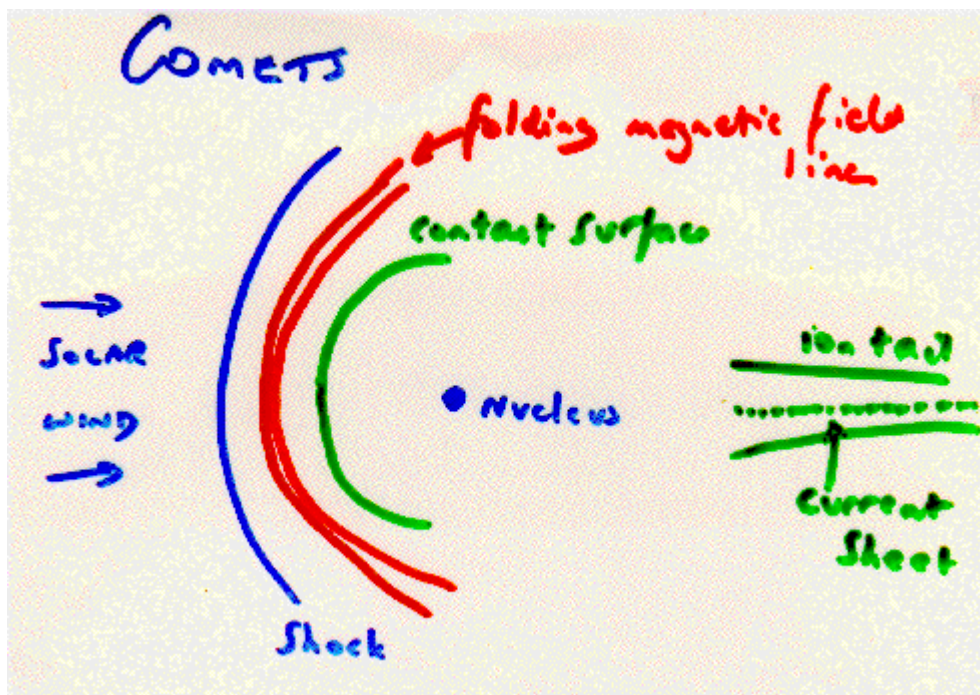 Comets
folding magnetic field
line
contact surface
SOLAR
WIND
Nucleus
ion tail
current
sheet
Shock